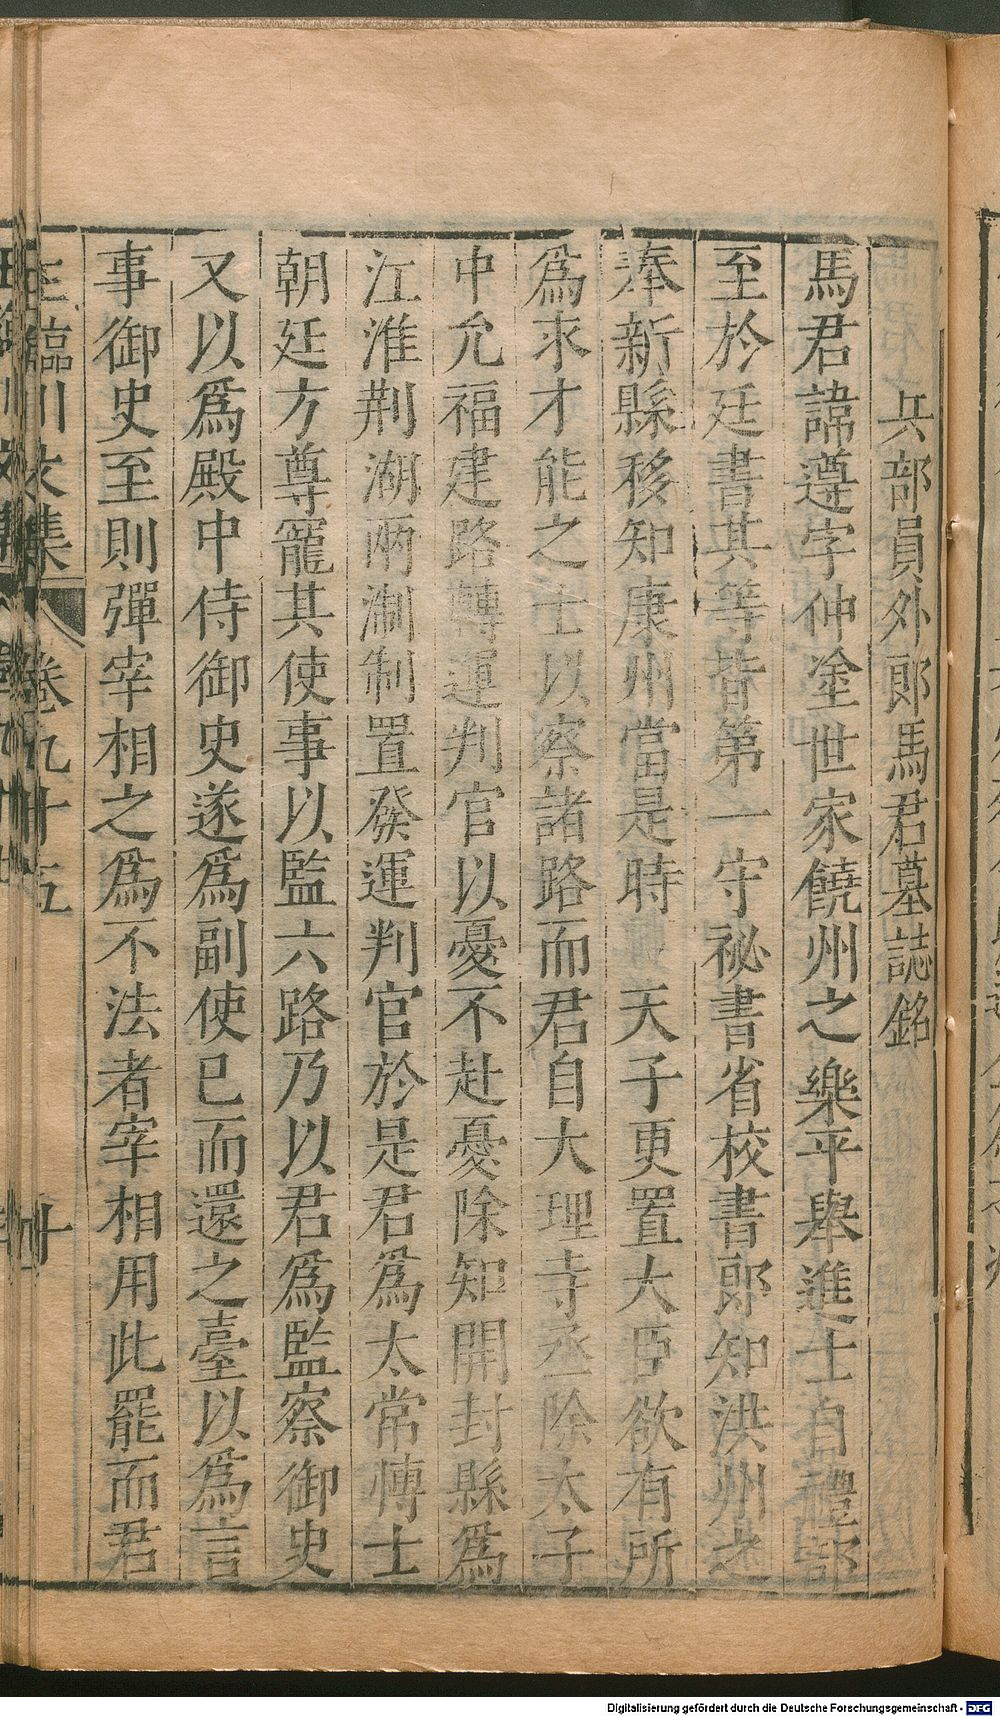 兵部員外郎馬君墓誌銘
馬君諱遵字仲塗世家饒州之樂平舉進士自禮部
至於廷書其等皆第一守祕書省校書郎知洪州之
奉新縣移知康州當是時 天子更置大臣欲有所
爲求才能之士以察諸路而君自大理寺丞除太子
中允福建路轉運判官以憂不赴憂除知開封縣爲
江淮荆湖兩淛制置發運判官於是君爲太常博士
朝廷方尊寵其使事以監六路乃以君爲監察御史
又以爲殿中侍御史遂爲副使已而還之臺以爲言
事御史至則彈宰相之爲不法者宰相用此罷而君
王臨川文集 卷九十五 十
Digitalisierung gefördert durch die Deutsche Forschungsgemeinschaft - DFG